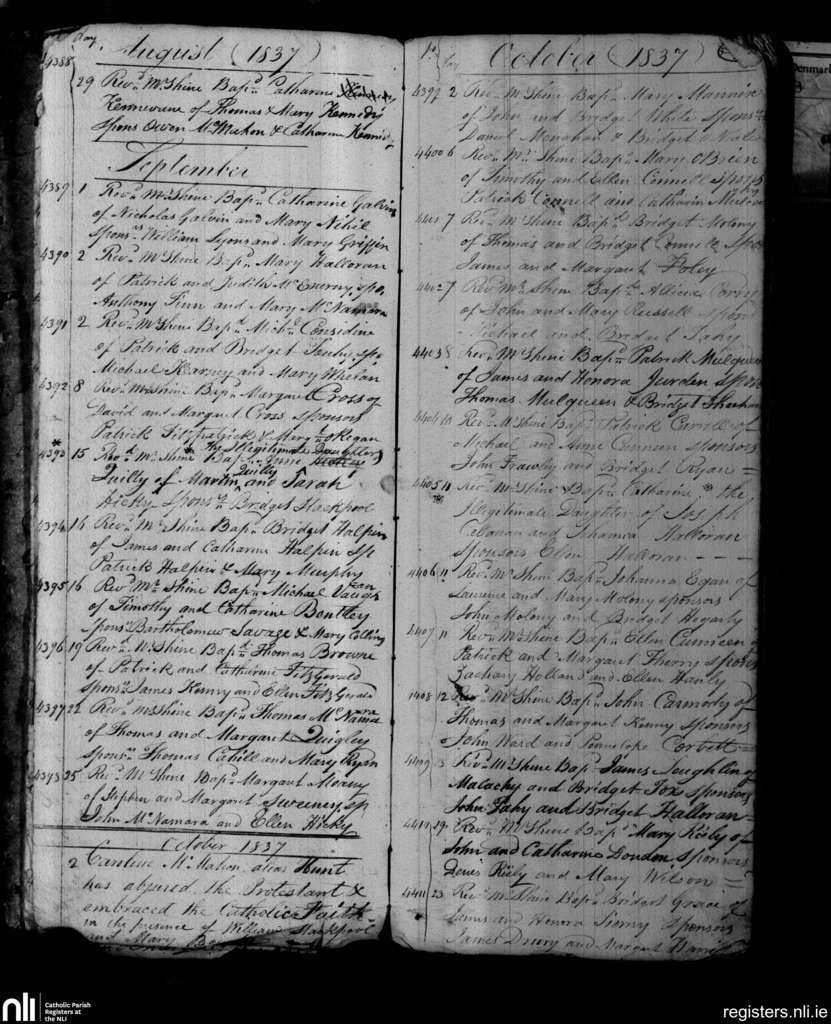 Day
August (1837)
4388
29 Revd. McShine Bapd. Catharine
Kennevane of Thomas & Mary Kennedy
spons Owen McMahon & Catharine Kennedy
September
4389 1 Revd. McShine Bapd. Catharine Galvin
of Nicholas Galvin and Mary Nihil
Spons. William Lyons and Mary Griffin
4390 2 Revd. McShine Bapd. Mary Halloran
of Patrick and Judith McEnerny, spo.
Anthony Finn and Mary McNamara
4391 2 Revd. McShine Bapd. Michl. Considine
of Patrick and Bridget spo
Michael Kearney and Mary Whelan
4392 8 Revd. McShine Bapd. Margaret Cross of
David and Margaret Cross sponsors
Patrick Fitzpatrick & Mary oRegan
the Illegitimate Daughters
4393 15 Revd. McShine Bapd.
Quilly
Quilly of Martin and Sarah
Hicky Spons. Bridget Stackpool
4394 16 Revd. McShine Bapd. Bridget Halpin
of James and Catharine Halpin Sp
Patrick Halpin & Mary Murphy
4395 16 Revd. McShine Bapd. Michael Vaughan
of Timothy and Catharine Bentley
Spons. Bartholomew Savage & Mary
4396 19 Revd. McShine Bapd. Thomas Browne
of Patrick and Catharine FitzGerald
Spons. James Kenny and Ellen FitzGerald
4397 22 Revd. McShine Bapd. Thomas McNamara
of Thomas and Margaret Quigley
Spons. Thomas Cahill and Mary Ryan
4393 25 Revd. McShine Bapd. Margaret Meany
of Stephen and Margaret Sweeney, sp
John McNamara and Ellen Hicky
October 1837
2 Caroline McMahon alias Hunt
has abjured the Protestant &
embraced the Catholic Faith
in the presence of William Stackpool
and Mary
October (1837)
4399 2 Revd. McShine Bapd. Mary Mannix
of John and Bridget White Spons.
Daniel Monahan & Bridget
4400 6 Revd. McShine Bapd. Mary OBrien
of Timothy and Ellen Connell spons
Patrick Connell and Catharin
4401 7 Revd. McShine Bapd. Bridget Molony
of Thomas and Bridget Connell Spo
James and Margaret Foley
4402 7 Revd. McShine Bapd. Allicia
of John and Mary Russell spons
Michael and Bridget Fahy
4403 8 Revd. McShine Bapd. Patrick Mulqueen
of James and Honora Jurden spons
Thomas Mulqueen & Bridget Sheehan
4404 10 Revd. McShine Bapd. Patrick Carroll of
Michael and Anne sponsors
John Frawly and Bridget Ryan =
4405 11 Revd. McShine Bapd. Catharine the
Illegitimate Daughter of Joseph
Calanan and Johanna Halloran
Sponsors Ellen Halloran - - -
4406 11 Revd. McShine Bapd. Johanna Egan of
Laurence and Mary Molony sponsors
John Molony and Bridget Hogarty
4407 11 Revd. McShine Bapd. Ellen Cunneen of
Patrick and Margaret Therry spons
Zachary Holland and Ellen Hanly
4408 12 Revd. McShine Bapd. John Carmody of
Thomas and Margaret Kenny sponsors
John Ward and Pennelope Corbett =
4409 Revd. McShine Bapd. James Loughlin of
Malachy and Bridget Fox sponsors
John Fahy and Bridget Halloran =
19 Revd. McShine Bapd. Mary Riely of
John and Catharine Londen Sponsors
Denis Riely and Mary Wilson =
4411 23 Revd. McShine Bapd. Bridget Gracie of
James and Honora sponsors
James Drury and Margaret
enmark
nli
Catholic Parish
Registers at
the NLI
registers.nli.ie